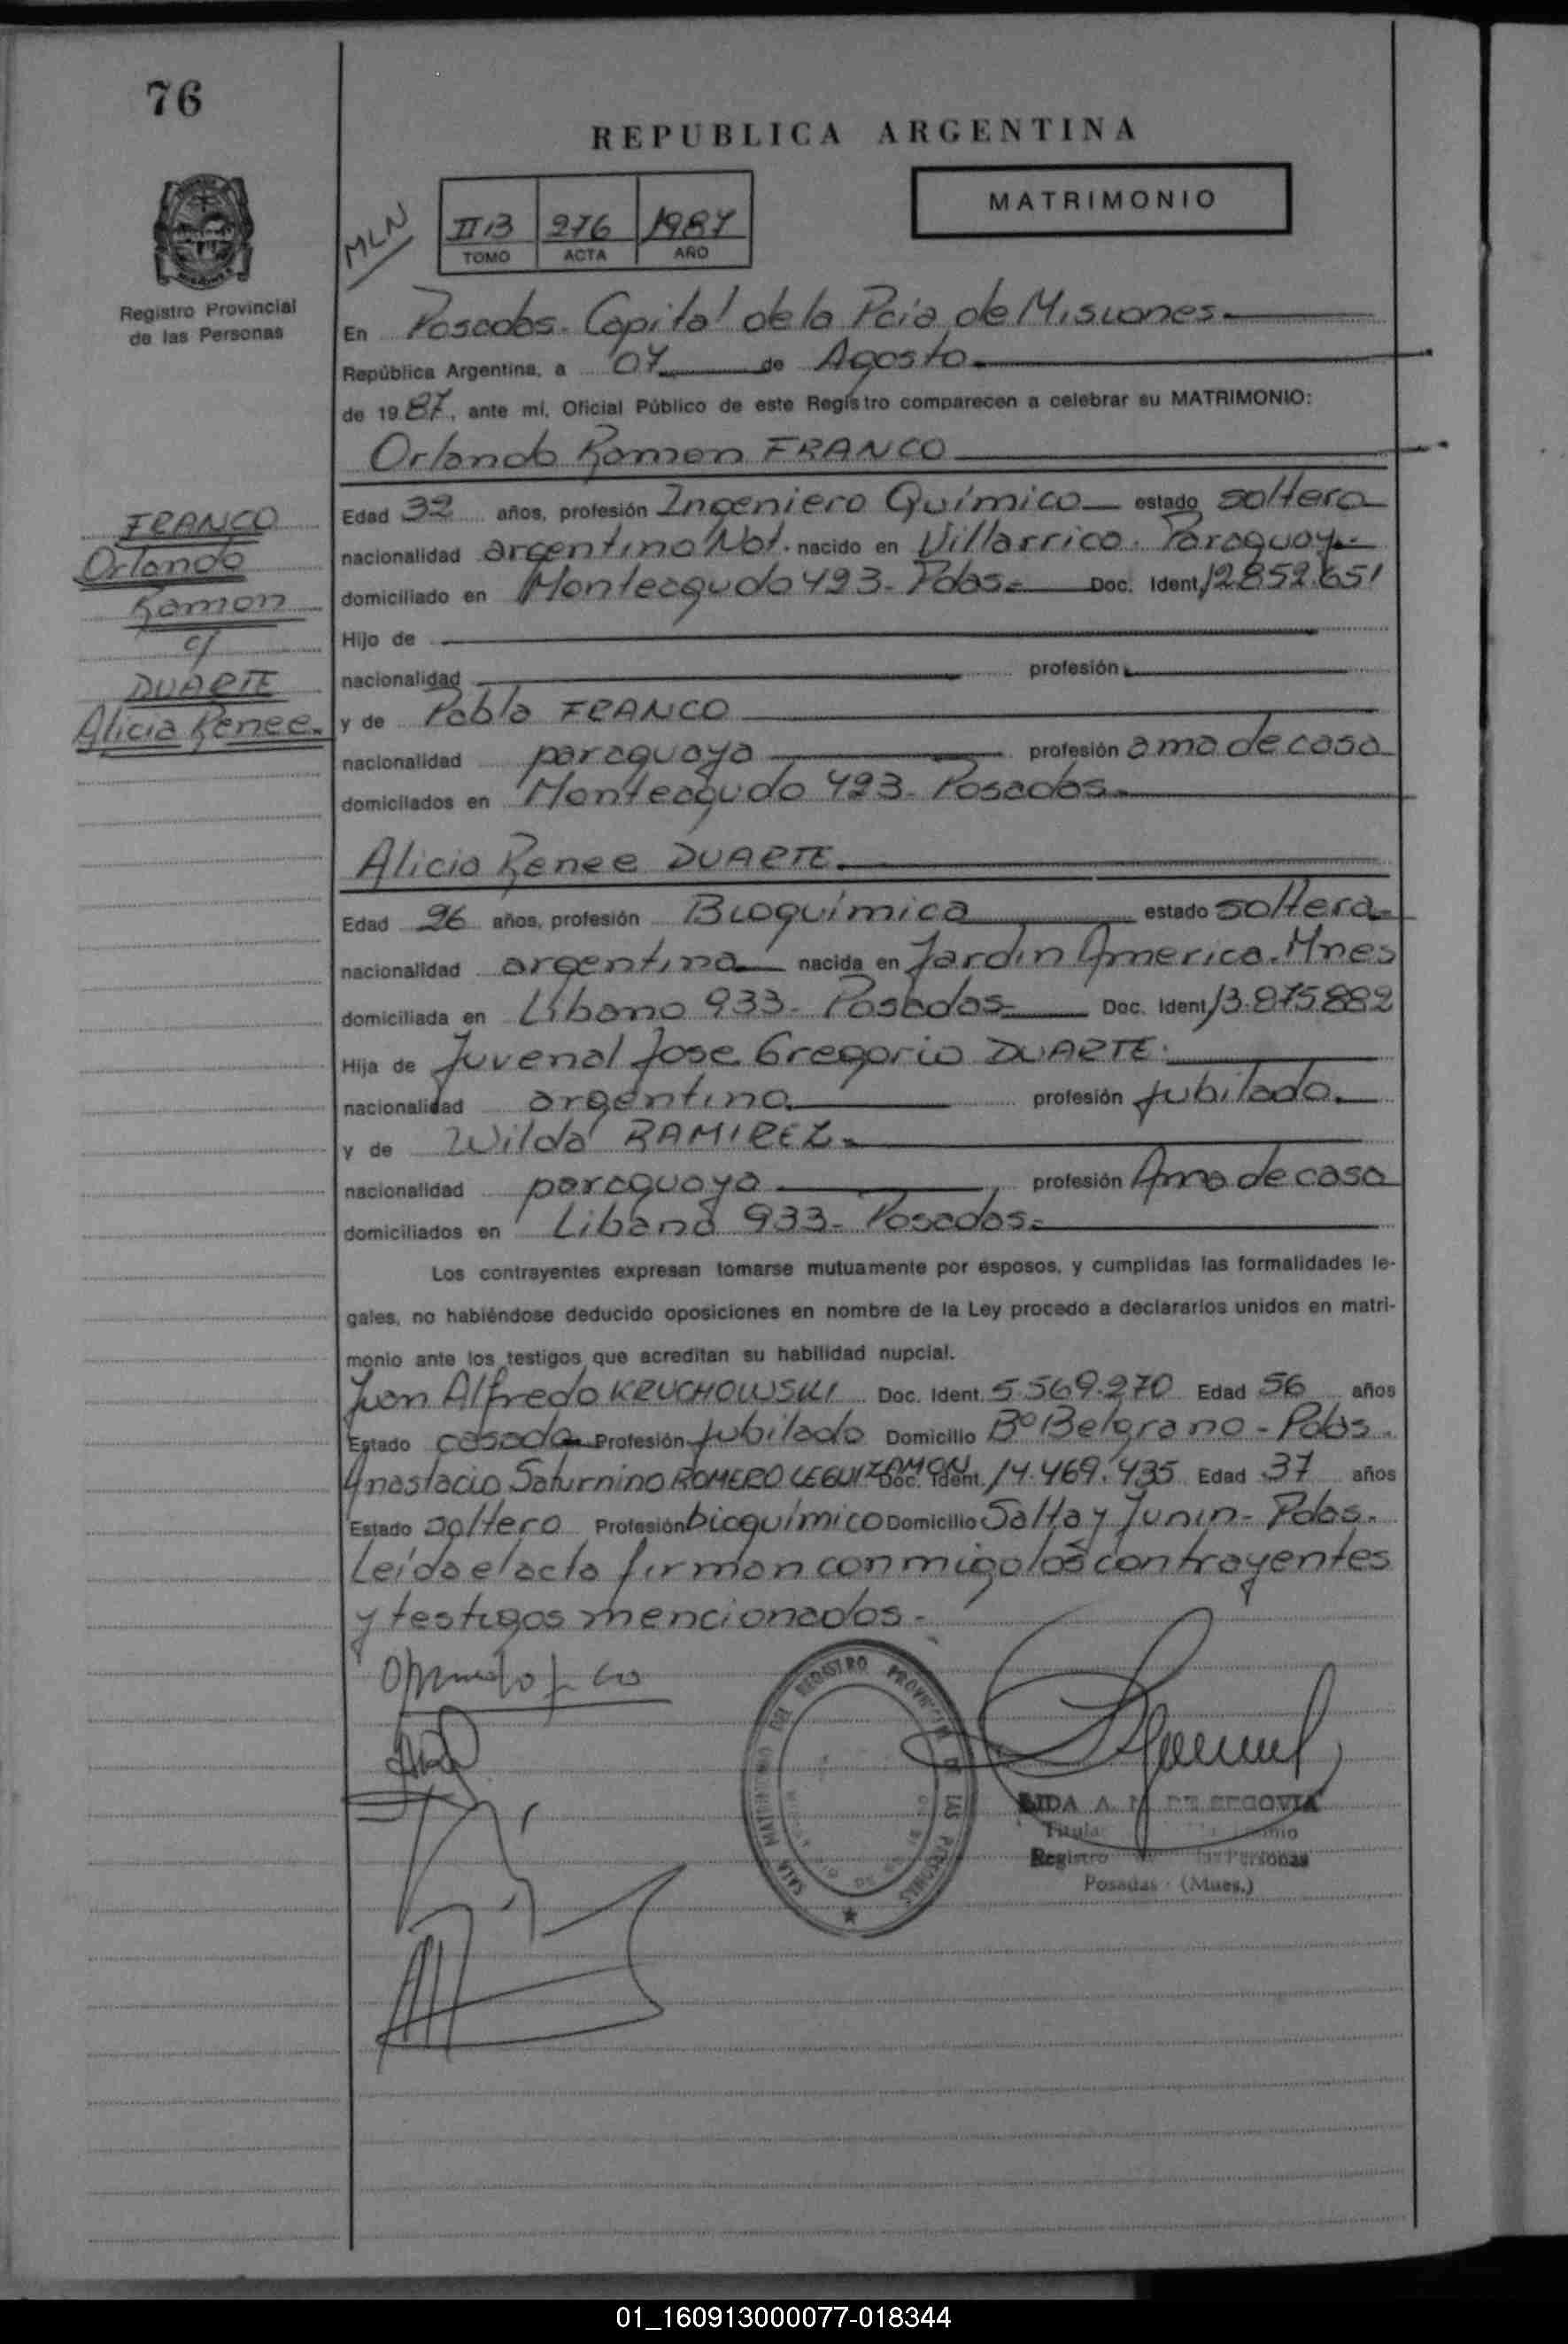 76
REPUBLICA ARGENTINA
MATRIMONIO
MLN
II B 276 1987
TOMO ACTA AÑO
Registro Provincial
de las Personas
En Posadas. Capital de la Pcia de Misiones.
República Argentina, a 07 de Agosto.
de 1987, ante mí, Oficial Público de este Registro comparecen a celebrar su MATRIMONIO:
Orlando Ramon FRANCO
FRANCO
Orlando
Ramon
c/
DUARTE
Alicia Renee.
Edad 32 años, profesión Ingeniero Químico estado soltero
nacionalidad argentino Nat. nacido en Villarrica. Paraguay.
domiciliado en Monteagudo 493- Pdas. Doc. Ident. 12.852.651
Hijo de
nacionalidad profesión
y de Pabla FRANCO
nacionalidad paraguaya profesión ama de casa
domiciliados en Monteagudo 493- Posadas.
Alicia Renee DUARTE.
Edad 26 años, profesión Bioquímica estado soltera
nacionalidad argentina nacida en Jardín America. Mnes
domiciliada en Libano 933- Posadas Doc. Ident. 13.875.882
Hija de Juvenal Jose Gregorio DUARTE.
nacionalidad argentino. profesión jubilado.
y de Wilda RAMIREZ.
nacionalidad paraguaya profesión Ama de casa
domiciliados en Libano 933- Posadas.
Los contrayentes expresan tomarse mutuamente por esposos, y cumplidas las formalidades le-
gales, no habiéndose deducido oposiciones en nombre de la Ley procedo a declararlos unidos en matri-
monio ante los testigos que acreditan su habilidad nupcial.
Juan Alfredo KRUCHOWSKI Doc. Ident. 5.569.270 Edad 56 años
Estado casado Profesión jubilado Domicilio Bº Belgrano - Pdas.
Anastacio Saturnino ROMERO LEGUIZAMON Doc. Ident. 14.469.435 Edad 37 años
Estado soltero Profesión bioquímico Domicilio Salta y Junin- Pdas.
Leída el acta firman conmigo los contrayentes
y testigos mencionados.
DEL REGISTRO PROVINCIAL DE LAS PERSONAS
SALA MATRIMONIOS
A. DE SEGOVIA
Titular
Registro las Personas
Posadas (Mnes.)
01_160913000077-018344